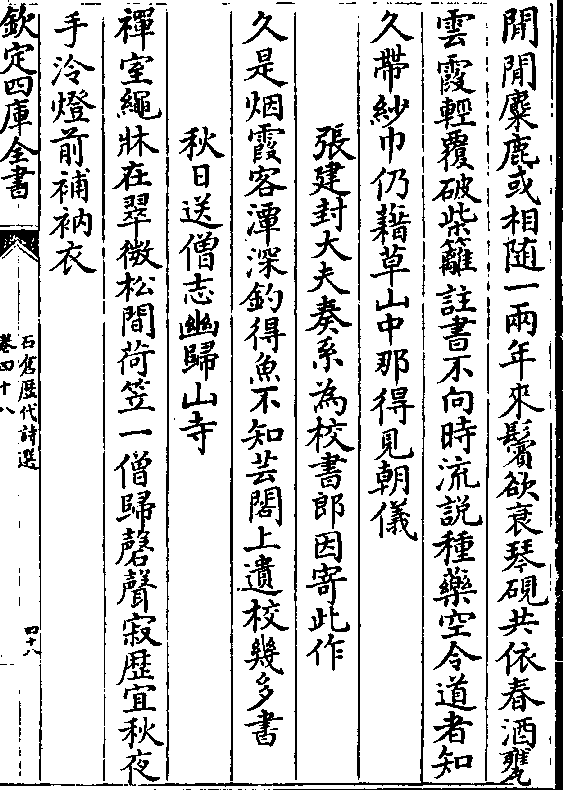 閒閒麋鹿或相随一兩年來鬢欲衰琴硯共依春酒甕
雲霞輕覆破柴籬註書不向時流説種藥空令道者知
久帶紗巾仍藉草山中那得見朝儀
張建封大夫奏系為校書郎因寄此作
久是烟霞客潭深釣得魚不知芸閣上遺校幾多書
秋日送僧志幽歸山寺
禪室繩牀在翠微松間荷笠一僧歸磬聲寂歴宜秋夜
手冷燈前補衲衣
欽定四庫全書
石倉歴代詩選
卷四十八
四十八